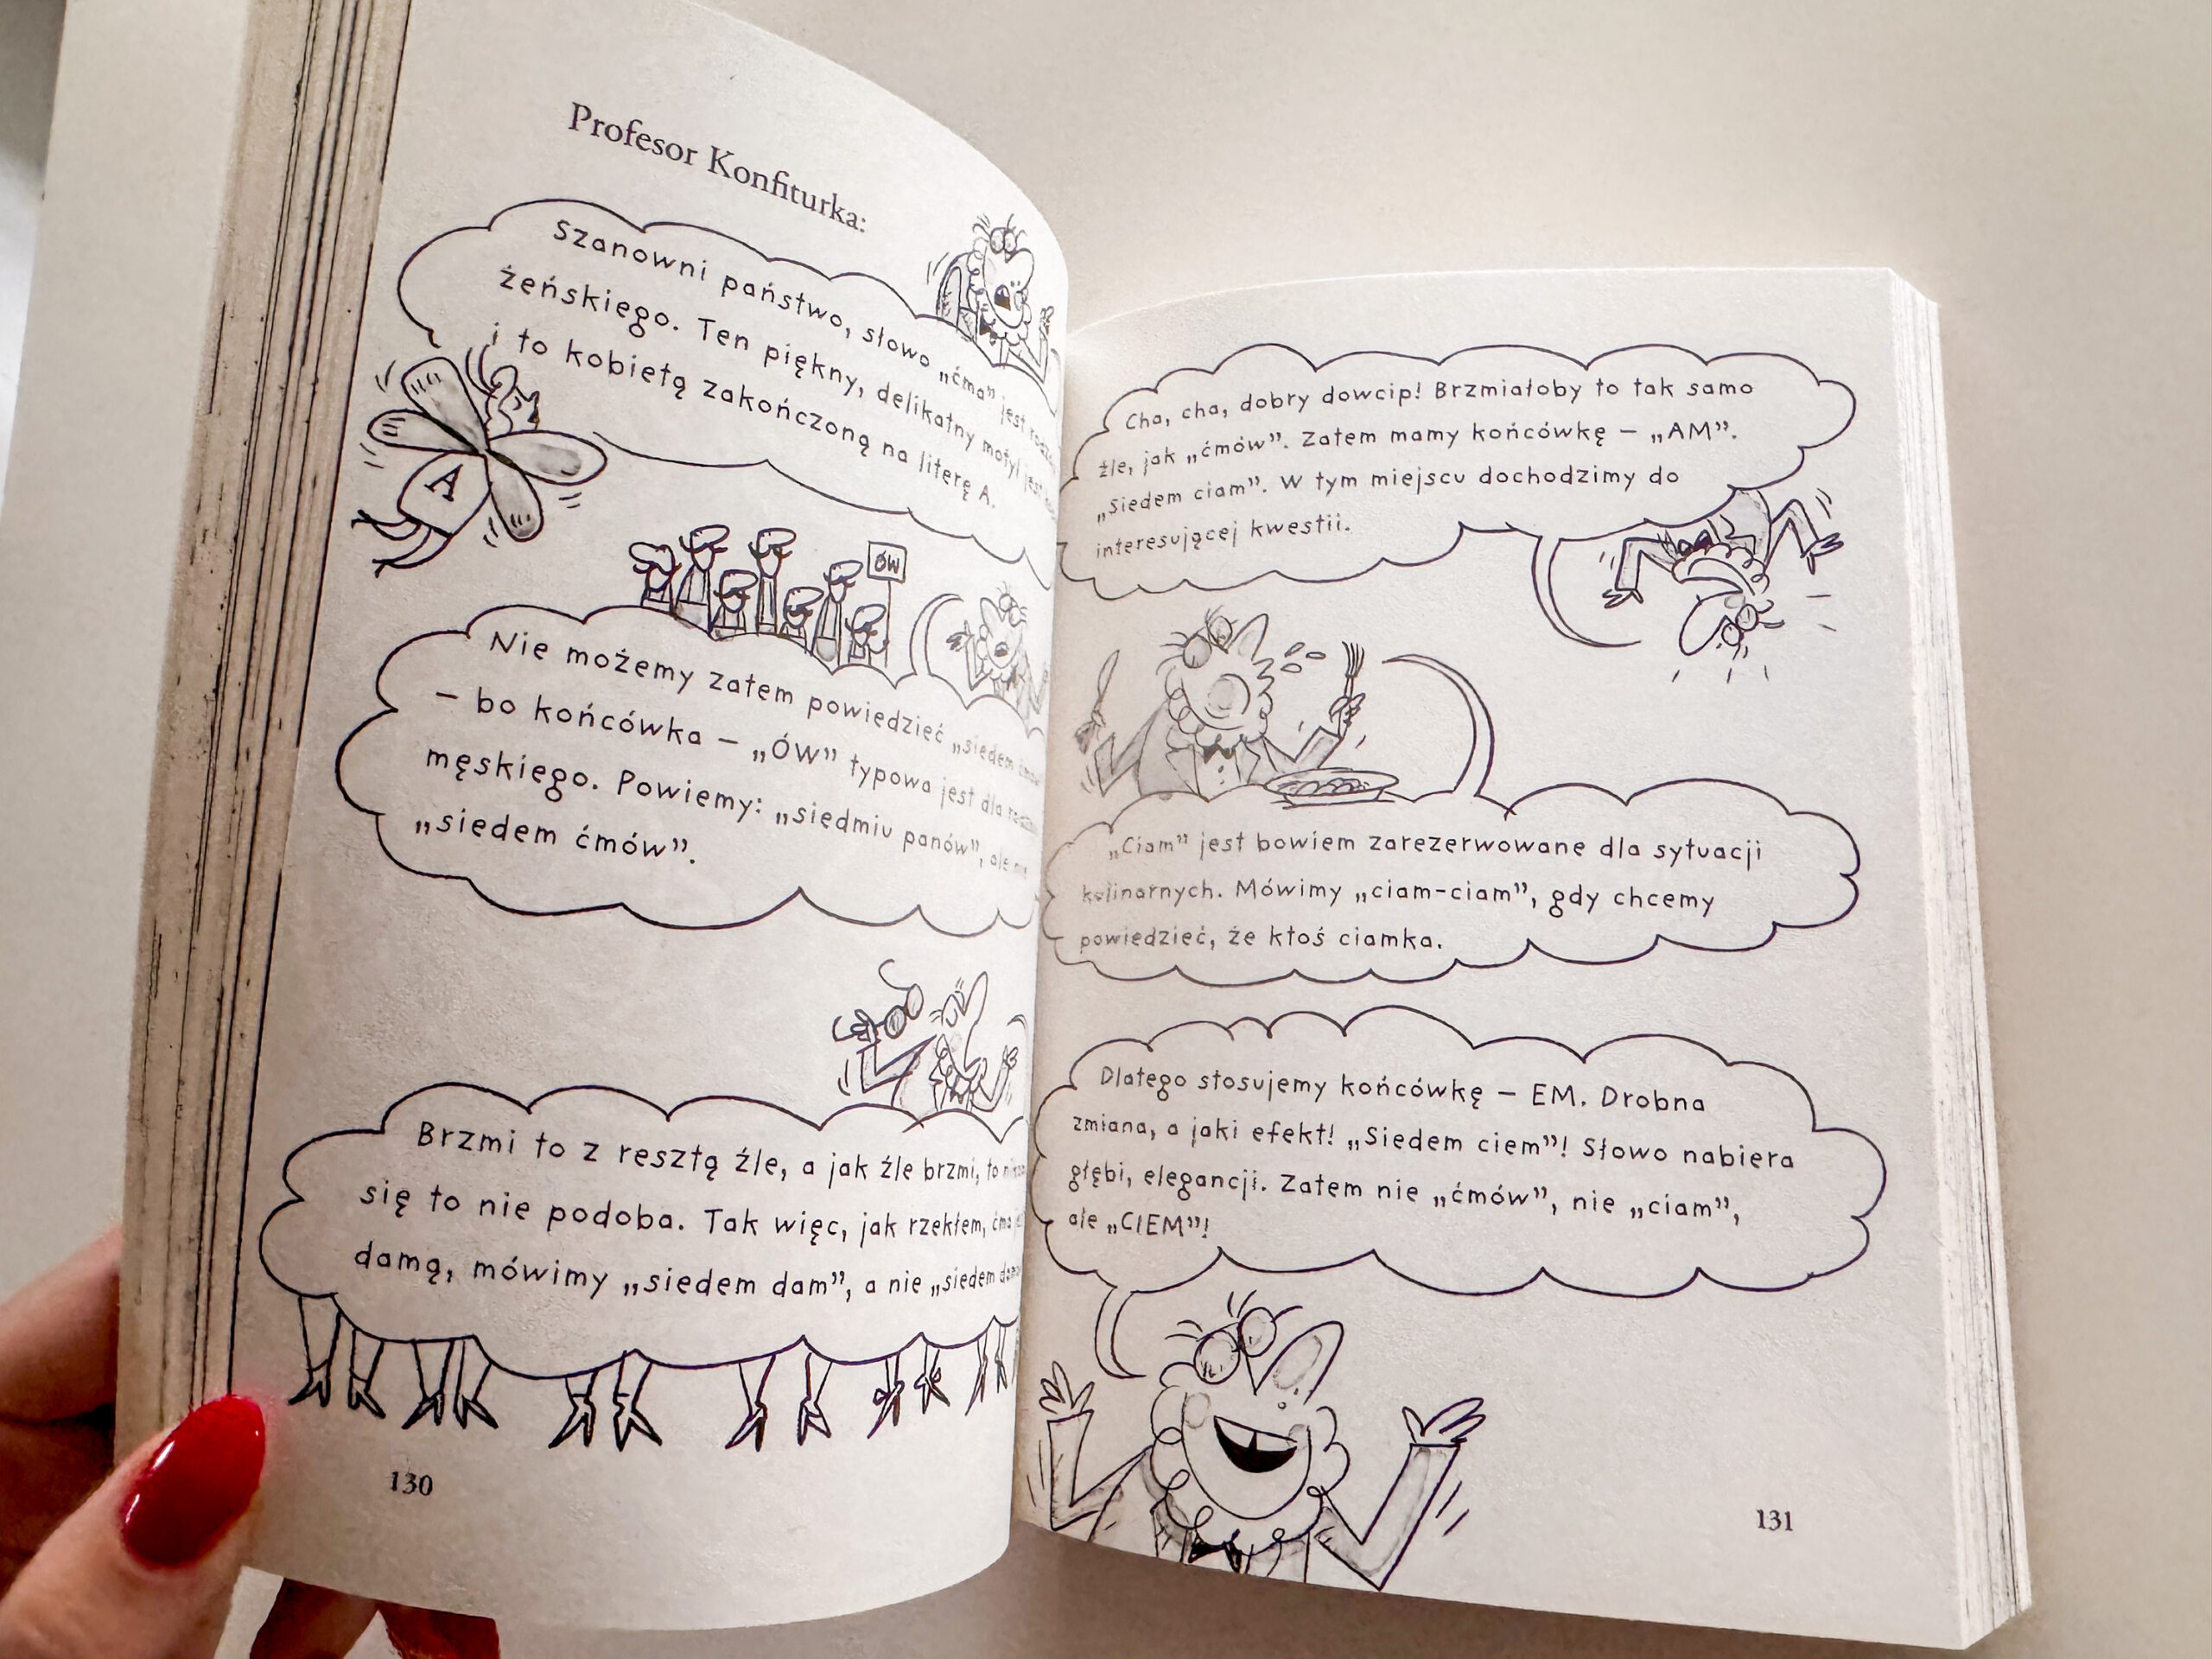 Profesor Konfiturka:
Szanowni państwo, słowo „ćma” jest
żeńskiego. Ten piękny, delikatny motyl jest
i to kobietą zakończoną na literę A.
A
ÓW
Nie możemy zatem powiedzieć „siedem ćmów”
– bo końcówka – „ÓW” typowa jest dla
męskiego. Powiemy: „siedmiu panów”, ale nie
„siedem ćmów”.
Brzmi to z resztą źle, a jak źle brzmi, to
się to nie podoba. Tak więc, jak rzekłem, ćma
damą, mówimy „siedem dam”, a nie „siedem
130
Cha, cha, dobry dowcip! Brzmiałoby to tak samo
źle, jak „ćmów”. Zatem mamy końcówkę – „AM”.
„Siedem ciam”. W tym miejscu dochodzimy do
interesującej kwestii.
„Ciam” jest bowiem zarezerwowane dla sytuacji
kulinarnych. Mówimy „ciam-ciam”, gdy chcemy
powiedzieć, że ktoś ciamka.
Dlatego stosujemy końcówkę – EM. Drobna
zmiana, a jaki efekt! „Siedem ciem”! Słowo nabiera
głębi, elegancji. Zatem nie „ćmów”, nie „ciam”,
ale „CIEM”!
131